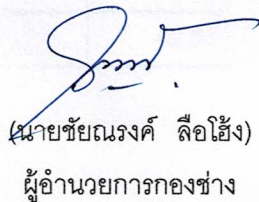 (นายชัยณรงค์ ลือโฮ้ง)
ผู้อำนวยการกองช่าง